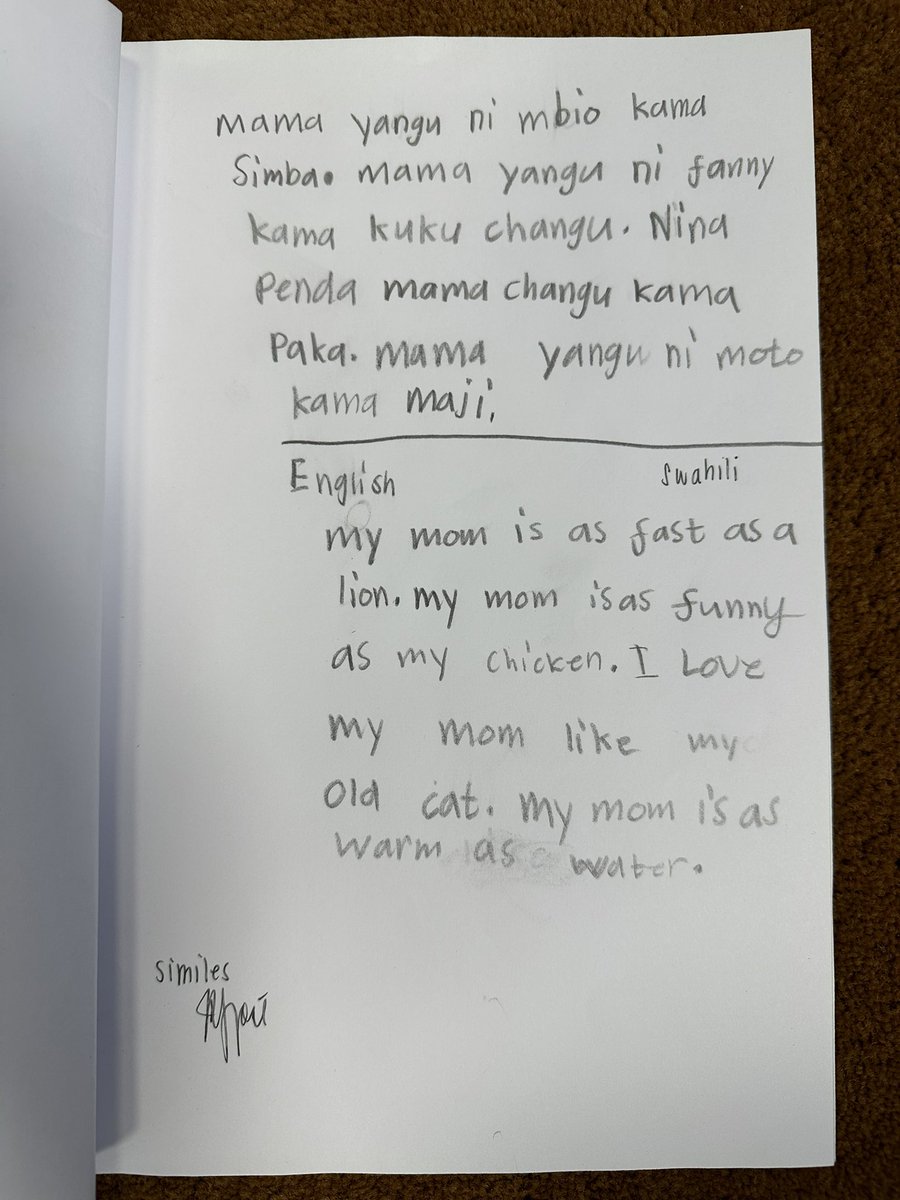 mama yangu ni mbio kama
Simba. mama yangu ni fanny
kama kuku changu. Nina
Penda mama changu kama
Paka. mama yangu ni moto
kama maji,
English Swahili
my mom is as fast as a
lion. my mom is as funny
as my chicken. I Love
my mom like my
old cat. my mom is as
warm as water.
similes